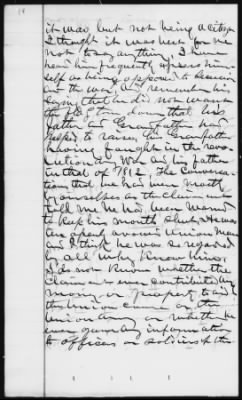 it was, but not being a citizen
I thought it was best for me
not to say anything, I have
heard him frequently express him
self as being opposed to secession
and the war, and remember his
saying that he did not want
the flag torn down that his
father and Grandfather had
helped to raise, his Grandfather
having fought in the revo
lutionary War and his father
in that of 1812, The Conversa
tions that we had were mostly
by ourselves as the claimant
told me he had been warned
to keep his mouth shut, He was
an openly avowed Union man
and I think he was so regarded
by all who knew him,
I do not know whether the
claimant ever contributed any
money or property to aid
the Union cause or the
Union Army or whether he
ever gave any information
to officers or soldiers of the